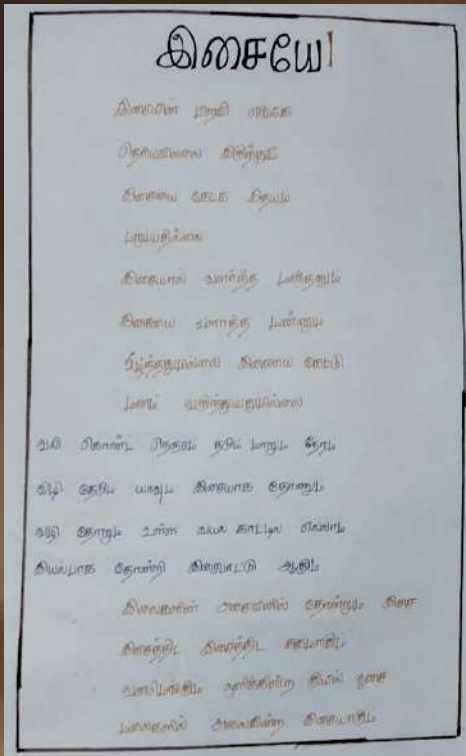 இசையே!
இசையின் பிறவி எங்கே
தெரியவில்லை இருந்தும்
இசையை கேடக இதயம்
மறுப்பதில்லை
இசையால் வளர்ந்த மனிதனும்
இசையை வளர்த்த மன்னனும்
வீழ்ந்ததுமில்லை இசையை கேட்டு
மனம் வருந்தியதுமில்லை
வலி கொண்ட நெஞ்சும் தடம் மாறும் நேரம்
விழி தேடும் யாவும் இசையாக தோணும்
வழி தோறும் உள்ள வயல் காட்டில் எல்லாம்
இயல்பாக தோன்றி இசைபாட்டு ஆகும்
இலைகளின் அசைவினில் தோன்றும் இசை
இசைத்திட இசைத்திட சுகமாகும்
ஒலிக்கின்ற குயில் ஓசை
மலைகளில் அலைகின்ற இசையாகும்